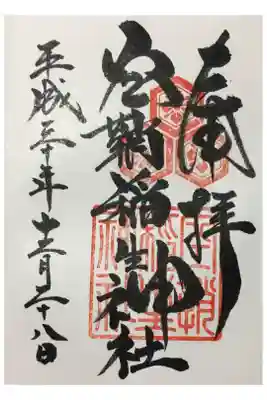 奉拝
空鞘稲生神社
平成三十年十二月二十八日